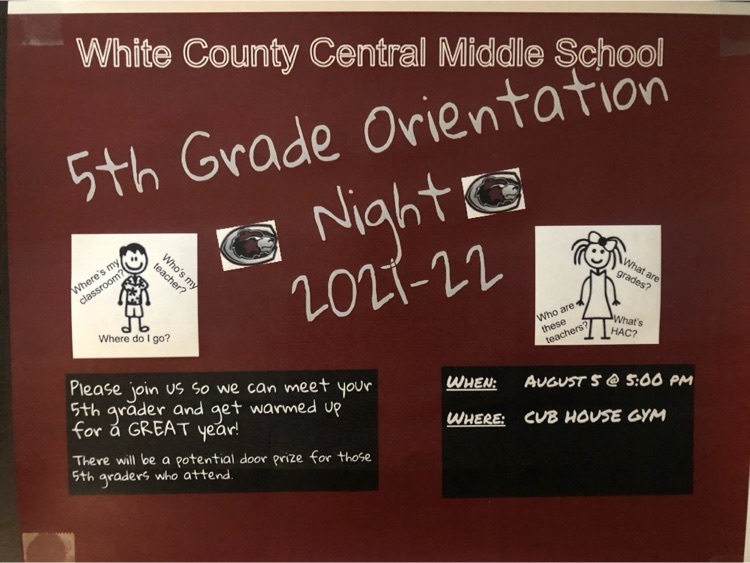 White County Central Middle School
5th Grade Orientation
Night
2021-22
Where's my
classroom?
Who's my
teacher?
Where do I go?
What are
grades?
Who are
these
teachers?
What's
HAC?
Please join us so we can meet your
5th grader and get warmed up
for a GREAT year!
There will be a potential door prize for those
5th graders who attend.
WHEN: AUGUST 5 @ 5:00 PM
WHERE: CUB HOUSE GYM